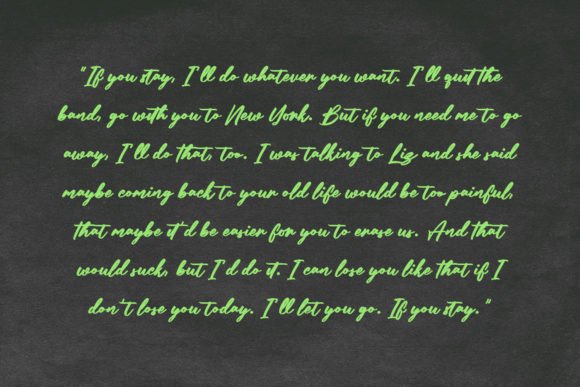 "If you stay, I'll do whatever you want. I'll quit the
band, go with you to New York. But if you need me to go
away, I'll do that, too. I was talking to Liz and she said
maybe coming back to your old life would be too painful,
that maybe it'd be easier for you to erase us. And that
would suck, but I'd do it. I can lose you like that if I
don't lose you today. I'll let you go. If you stay."